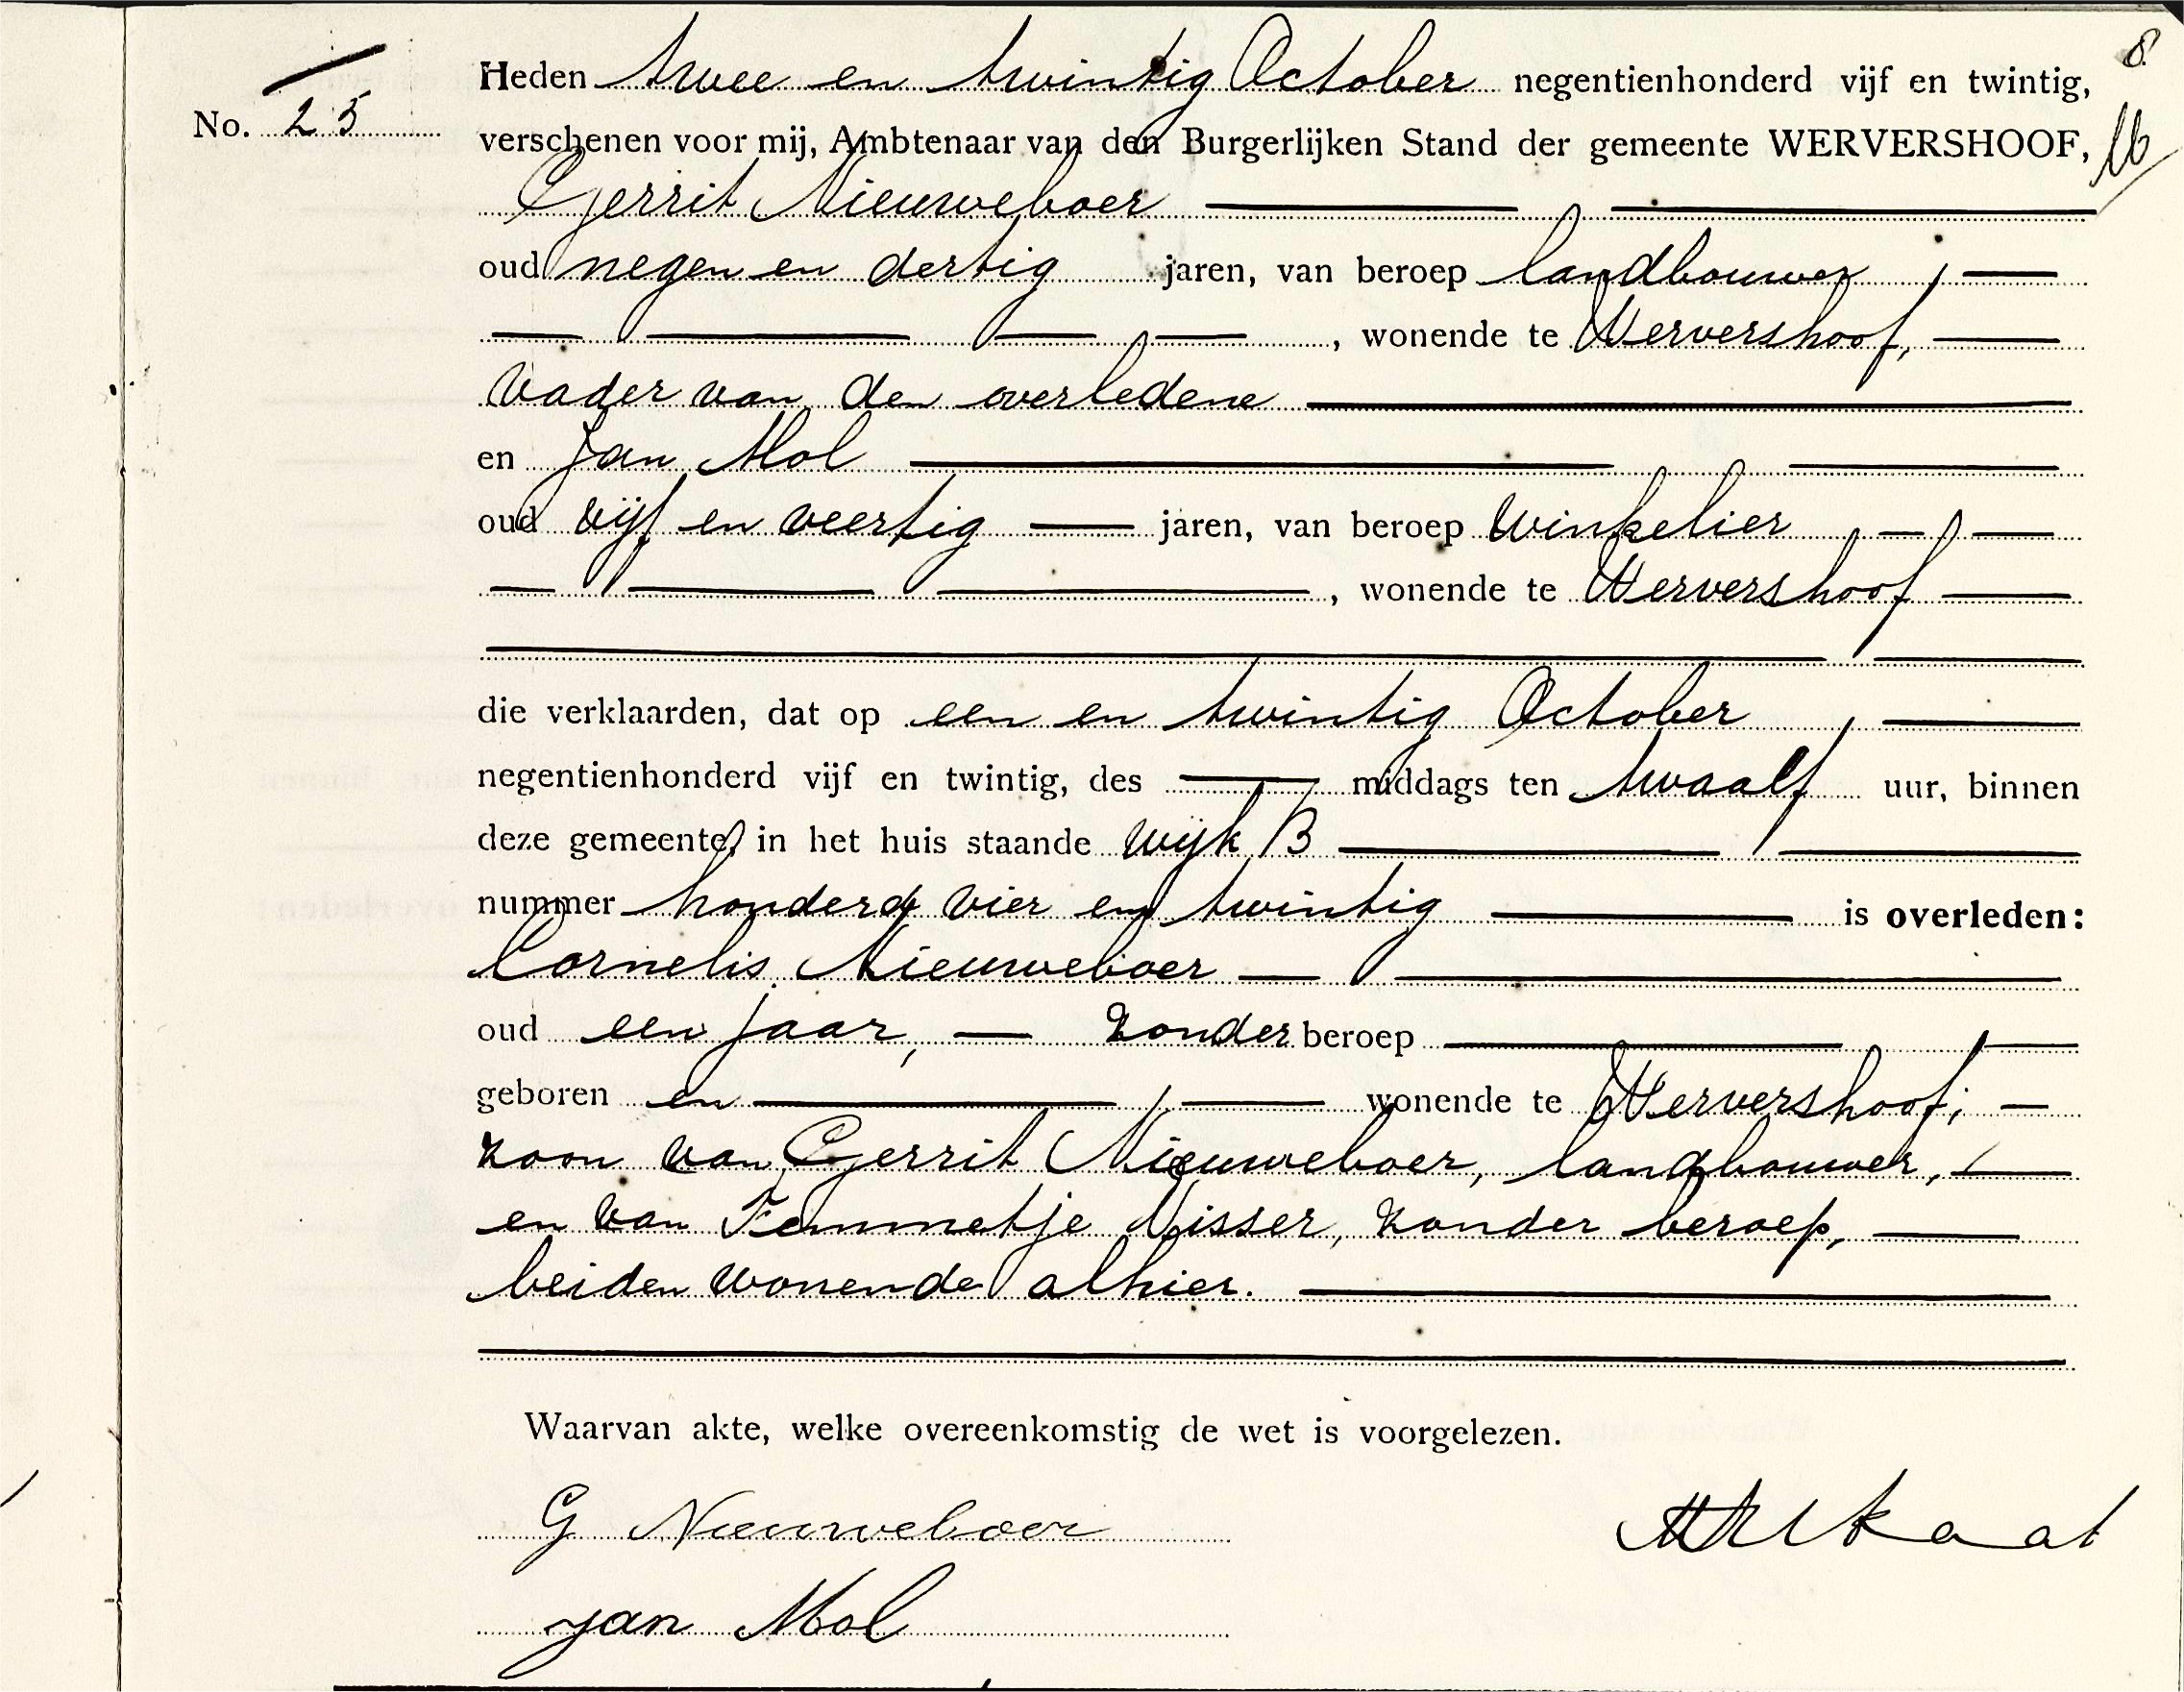 8.
Heden twee en twintig October negentienhonderd vijf en twintig,
No. 25
verschenen voor mij, Ambtenaar van den Burgerlijken Stand der gemeente WERVERSHOOF,
Gerrit Nieuweboer
oud negen en dertig jaren, van beroep landbouwer,
, wonende te Wervershoof,
vader van den overledene
en Jan Mol
oud vijf en veertig jaren, van beroep winkelier
, wonende te Wervershoof
die verklaarden, dat op een en twintig October,
negentienhonderd vijf en twintig, des middags ten twaalf uur, binnen
deze gemeente, in het huis staande wijk B
nummer honderd vier en twintig is overleden:
Cornelis Nieuweboer
oud een jaar, zonder beroep
geboren en wonende te Wervershoof;
zoon van Gerrit Nieuweboer, landbouwer,
en van Femmetje Visser, zonder beroep,
beiden wonende alhier.
Waarvan akte, welke overeenkomstig de wet is voorgelezen.
G Nieuweboer
Jan Mol